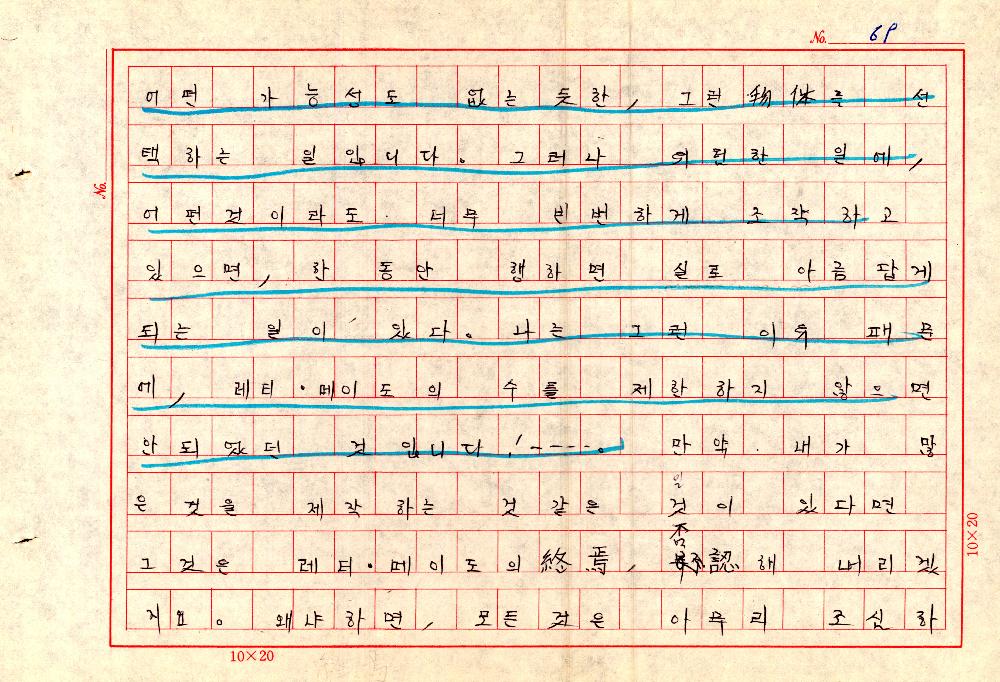 No. 69
어떤 가능성도 없는 듯한, 그런 物体를 선
택하는 일입니다. 그러나 어떤한 일에,
어떤것이라도 너무 빈번하게 조작하고
있으면, 한동안 행하면 실로 아름답게
되는 일이 있다. 나는 그런 이유 때문
에, 레티·메이도의 수를 제한하지 않으면
안되었던 것입니다!----。 만약 내가 많
은 것을 제작하는 것 같은 일
것이 있다면
그것은 레티·메이도의 終焉, 否認해 내리겠
지요。 왜냐하면, 모든 것은 아무리 조심하
No.
10×20
10×20